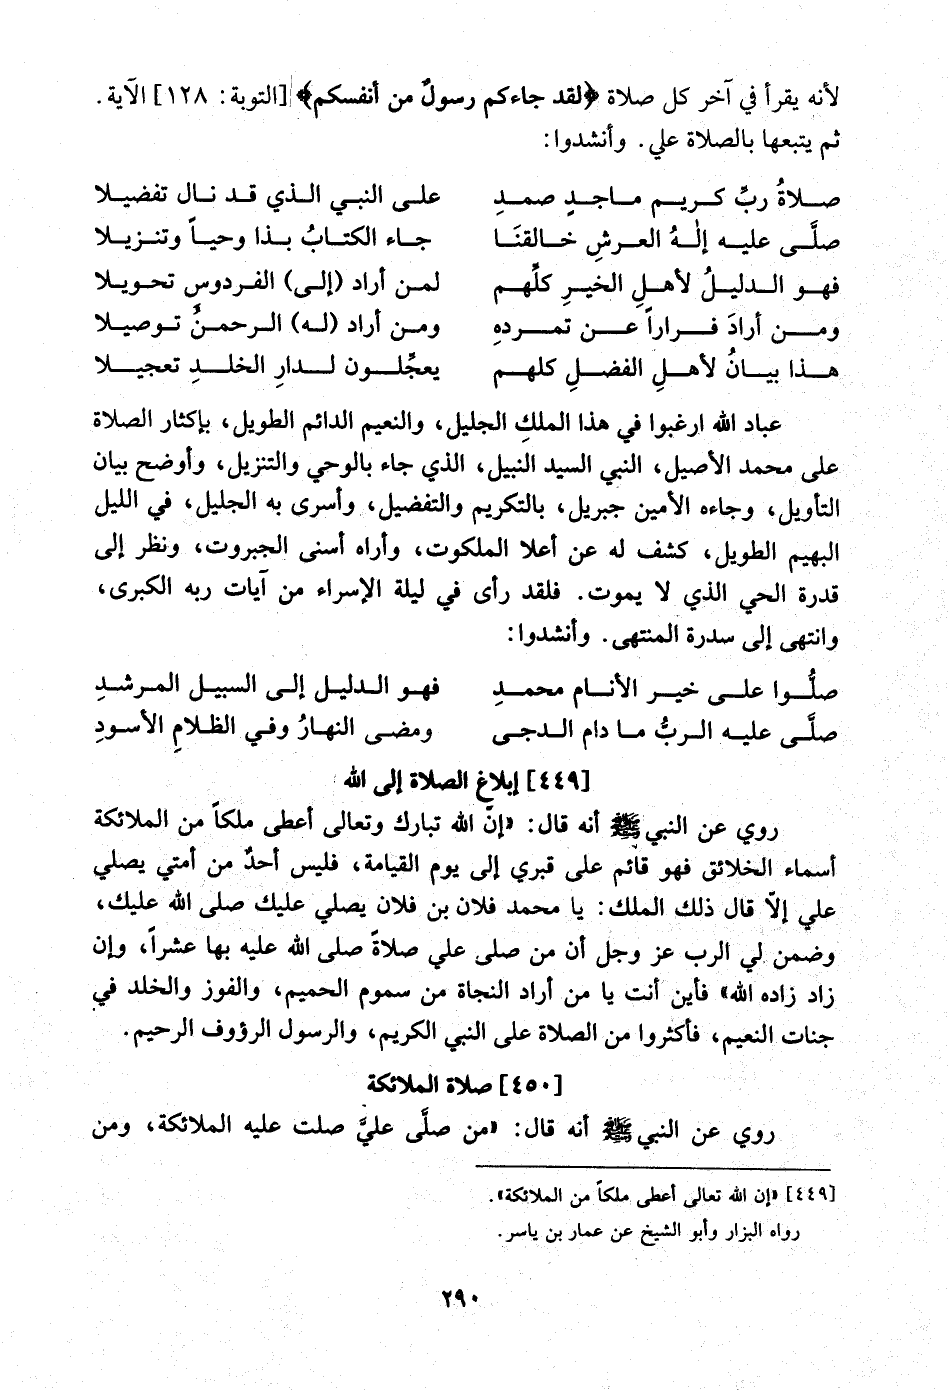 لأنه يقرأ في آخر كل صلاة ﴿لقد جاءكم رسولٌ من أنفسكم﴾ [التوبة: ١٢٨] الآية.
ثم يتبعها بالصلاة علي. وأنشدوا:
صلاةُ ربِّ كريم ماجدٍ صمدِ على النبي الذي قد نال تفضيلا
صلَّى عليه إلٰهُ العرشِ خالقنَا جاء الكتابُ بذا وحياً وتنزيلا
فهو الدليلُ لأهلِ الخيرِ كلِّهم لمن أراد (إلى) الفردوسِ تحويلا
ومن أرادَ فراراً عن تمردهِ ومن أراد (له) الرحمنُ توصيلا
هذا بيانُ لأهلِ الفضلِ كلهم يعجِّلون لدارِ الخلدِ تعجيلا
عباد الله ارغبوا في هذا الملكِ الجليل، والنعيم الدائم الطويل، بإكثار الصلاة
على محمد الأصيل، النبي السيد النبيل، الذي جاء بالوحي والتنزيل، وأوضح بيان
التأويل، وجاءه الأمين جبريل، بالتكريم والتفضيل، وأسرى به الجليل، في الليل
البهيم الطويل، كشف له عن أعلا الملكوت، وأراه أسنى الجبروت، ونظر إلى
قدرة الحي الذي لا يموت. فلقد رأى في ليلة الإسراء من آيات ربه الكبرى،
وانتهى إلى سدرة المنتهى. وأنشدوا:
صلُّوا على خير الأنام محمدِ فهو الدليل إلى السبيل المرشدِ
صلَّى عليه الربُّ ما دام الدجى ومضى النهارُ وفي الظلامِ الأسودِ
[٤٤٩] إبلاغ الصلاة إلى الله
روي عن النبي ﷺ أنه قال: «إنّ الله تبارك وتعالى أعطى ملكاً من الملائكة
أسماء الخلائق فهو قائم على قبري إلى يوم القيامة، فليس أحدٌ من أمتي يصلي
علي إلاّ قال ذلك الملك: يا محمد فلان بن فلان يصلي عليك صلى الله عليك،
وضمن لي الرب عز وجل أن من صلى علي صلاةً صلى الله عليه بها عشراً، وإن
زاد زاده الله» فأين أنت يا من أراد النجاة من سموم الحميم، والفوز والخلد في
جنات النعيم، فأكثروا من الصلاة على النبي الكريم، والرسول الرؤوف الرحيم.
[٤٥٠] صلاة الملائكة
روي عن النبي ﷺ أنه قال: «من صلَّى عليَّ صلت عليه الملائكة، ومن
[٤٤٩] «إن الله تعالى أعطى ملكاً من الملائكة».
رواه البزار وأبو الشيخ عن عمار بن ياسر.
٢٩٠